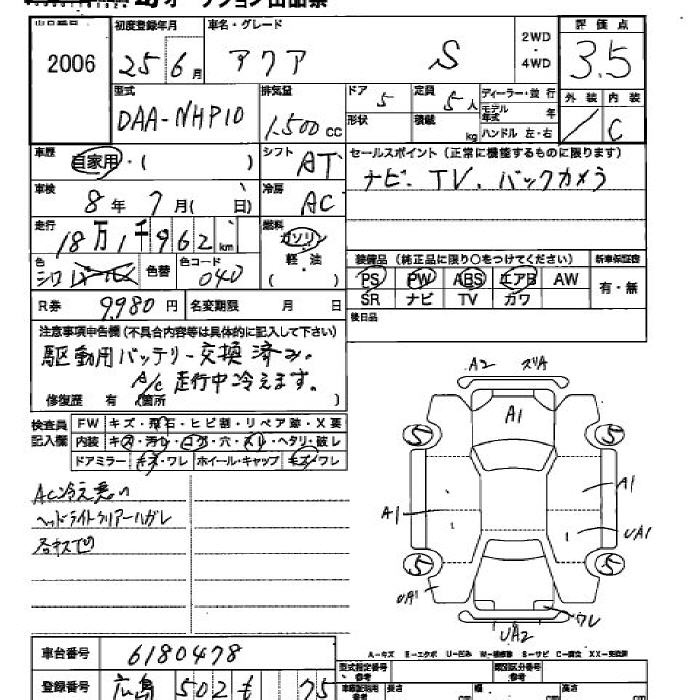 オークション出品票
出品番号 初度登録年月 車名・グレード 2WD ・ 4WD 評価点
2006 25 6月 アクア S 3.5
型式 排気量 ドア 定員 ディーラー・並行 外装 内装
DAA-NHP10 1,500cc 5 5人 モデル年式 年 / C
形状 積載 kg ハンドル 左・右
車歴 自家用・( ) シフト AT セールスポイント (正常に機能するものに限ります)
車検 8年7月( 日) 冷房 AC ナビ、TV、バックカメラ
走行 18万1千962km 燃料 ガソリン 軽・油
装備品 (純正品に限り○をつけてください) 新車保証書
色 シロ 色替 色コード 040
PS PW ABS エアB AW 有・無
SR ナビ TV カワ
R券 9,980円 名変期限 月 日
後日品
注意事項申告欄 (不具合内容等は具体的に記入して下さい)
駆動用バッテリー交換済み。
A/c 走行中冷えます。
修復歴 有 (箇所 )
検査員記入欄
FW キズ・飛石・ヒビ割・リペア跡・X要
内装 キズ・汚レ・コゲ・穴・スレ・ヘタリ・破レ
ドアミラー キズ・ワレ ホイール・キャップ キズ・ワレ
AC冷え悪い
ヘッドライトクリアーハガレ
各キズ凹
A2 スリA
A1
5 5
A1
A1
UA1
5 5
UA1
ワレ
UA2
A-キズ E-エクボ U-凹み W-補修跡 S-サビ C-腐食 XX-交換済
車台番号 6180478
型式指定番号 参考 類別区分番号 参考
登録番号 広島 502 も 75
長さ cm 幅 cm 高さ cm